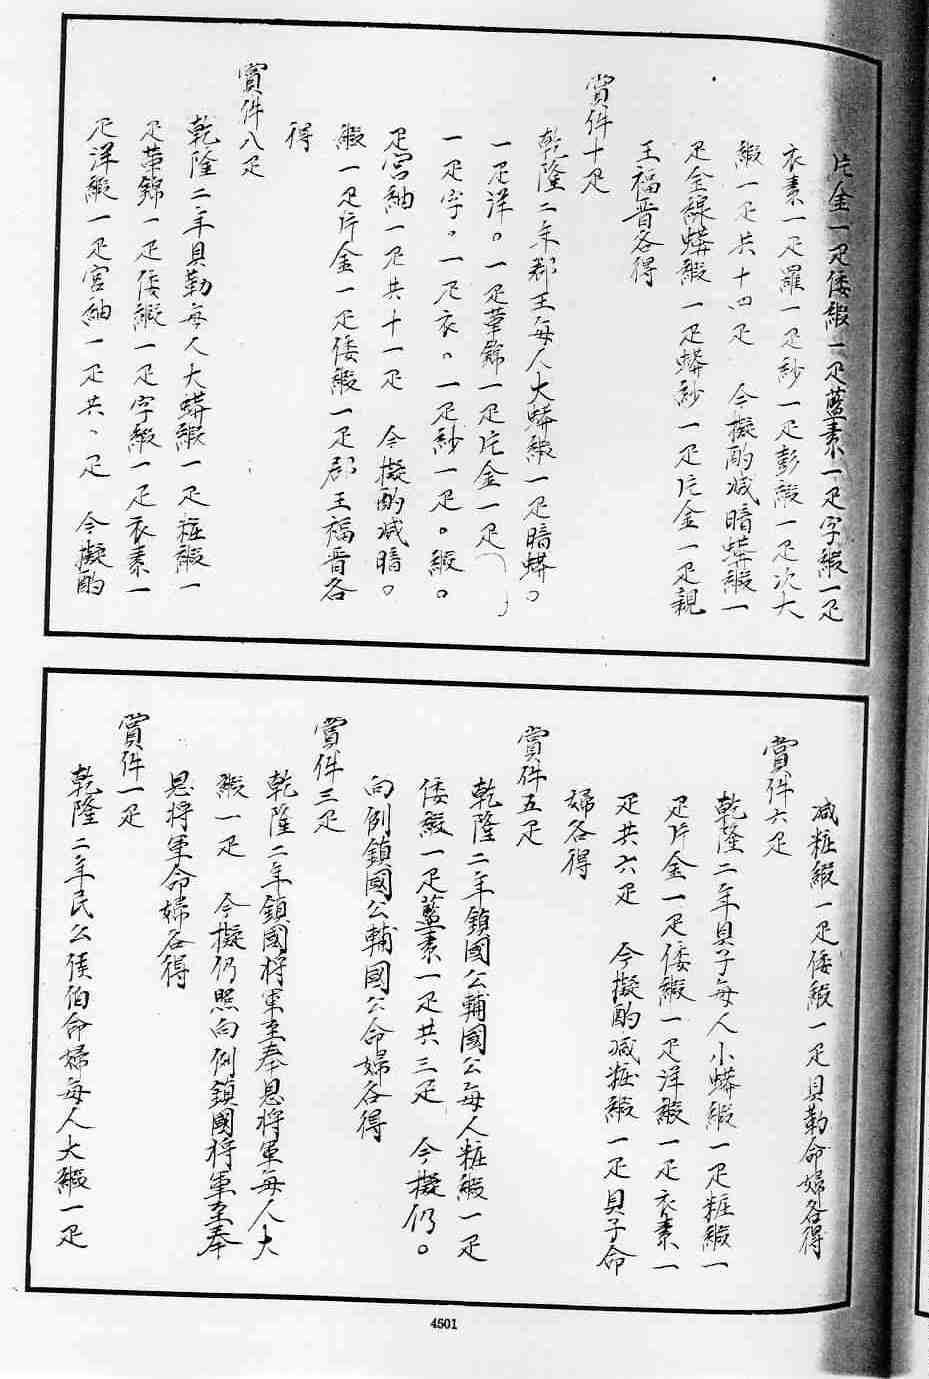 片金一疋倭緞一疋藍素一疋字緞一疋
衣素一疋羅一疋紗一疋彭緞一疋次大
緞一疋共十四疋 今擬酌减暗蟒緞一
疋金線蟒緞一疋蟒紗一疋片金一疋親
王福晋各得
賞件十疋
乾隆二年郡王每人大蟒緞一疋暗蟒。
一疋洋。一疋華錦一疋片金一疋
一疋字。一疋衣。一疋紗一疋。緞。
疋宮紬一疋共十一疋 今擬酌减暗。
緞一疋片金一疋倭緞一疋郡王福晋各
得
賞件八疋
乾隆二年貝勒每人大蟒緞一疋粧緞一
疋華錦一疋倭緞一疋字緞一疋衣素一
疋洋緞一疋宮紬一疋共、疋 今擬酌
减粧緞一疋倭緞一疋貝勒命婦各得
賞件六疋
乾隆二年貝子每人小蟒緞一疋粧緞一
疋片金一疋倭緞一疋洋緞一疋衣素一
疋共六疋 今擬酌减粧緞一疋貝子命
婦各得
賞件五疋
乾隆二年鎮國公輔國公每人粧緞一疋
倭緞一疋藍素一疋共三疋 今擬仍。
向例鎮國公輔國公命婦各得
賞件三疋
乾隆二年鎮國将軍至奉恩将軍每人大
緞一疋 今擬仍照向例鎮國将軍至奉
恩将軍命婦各得
賞件一疋
乾隆二年民公侯伯命婦每人大緞一疋
4501